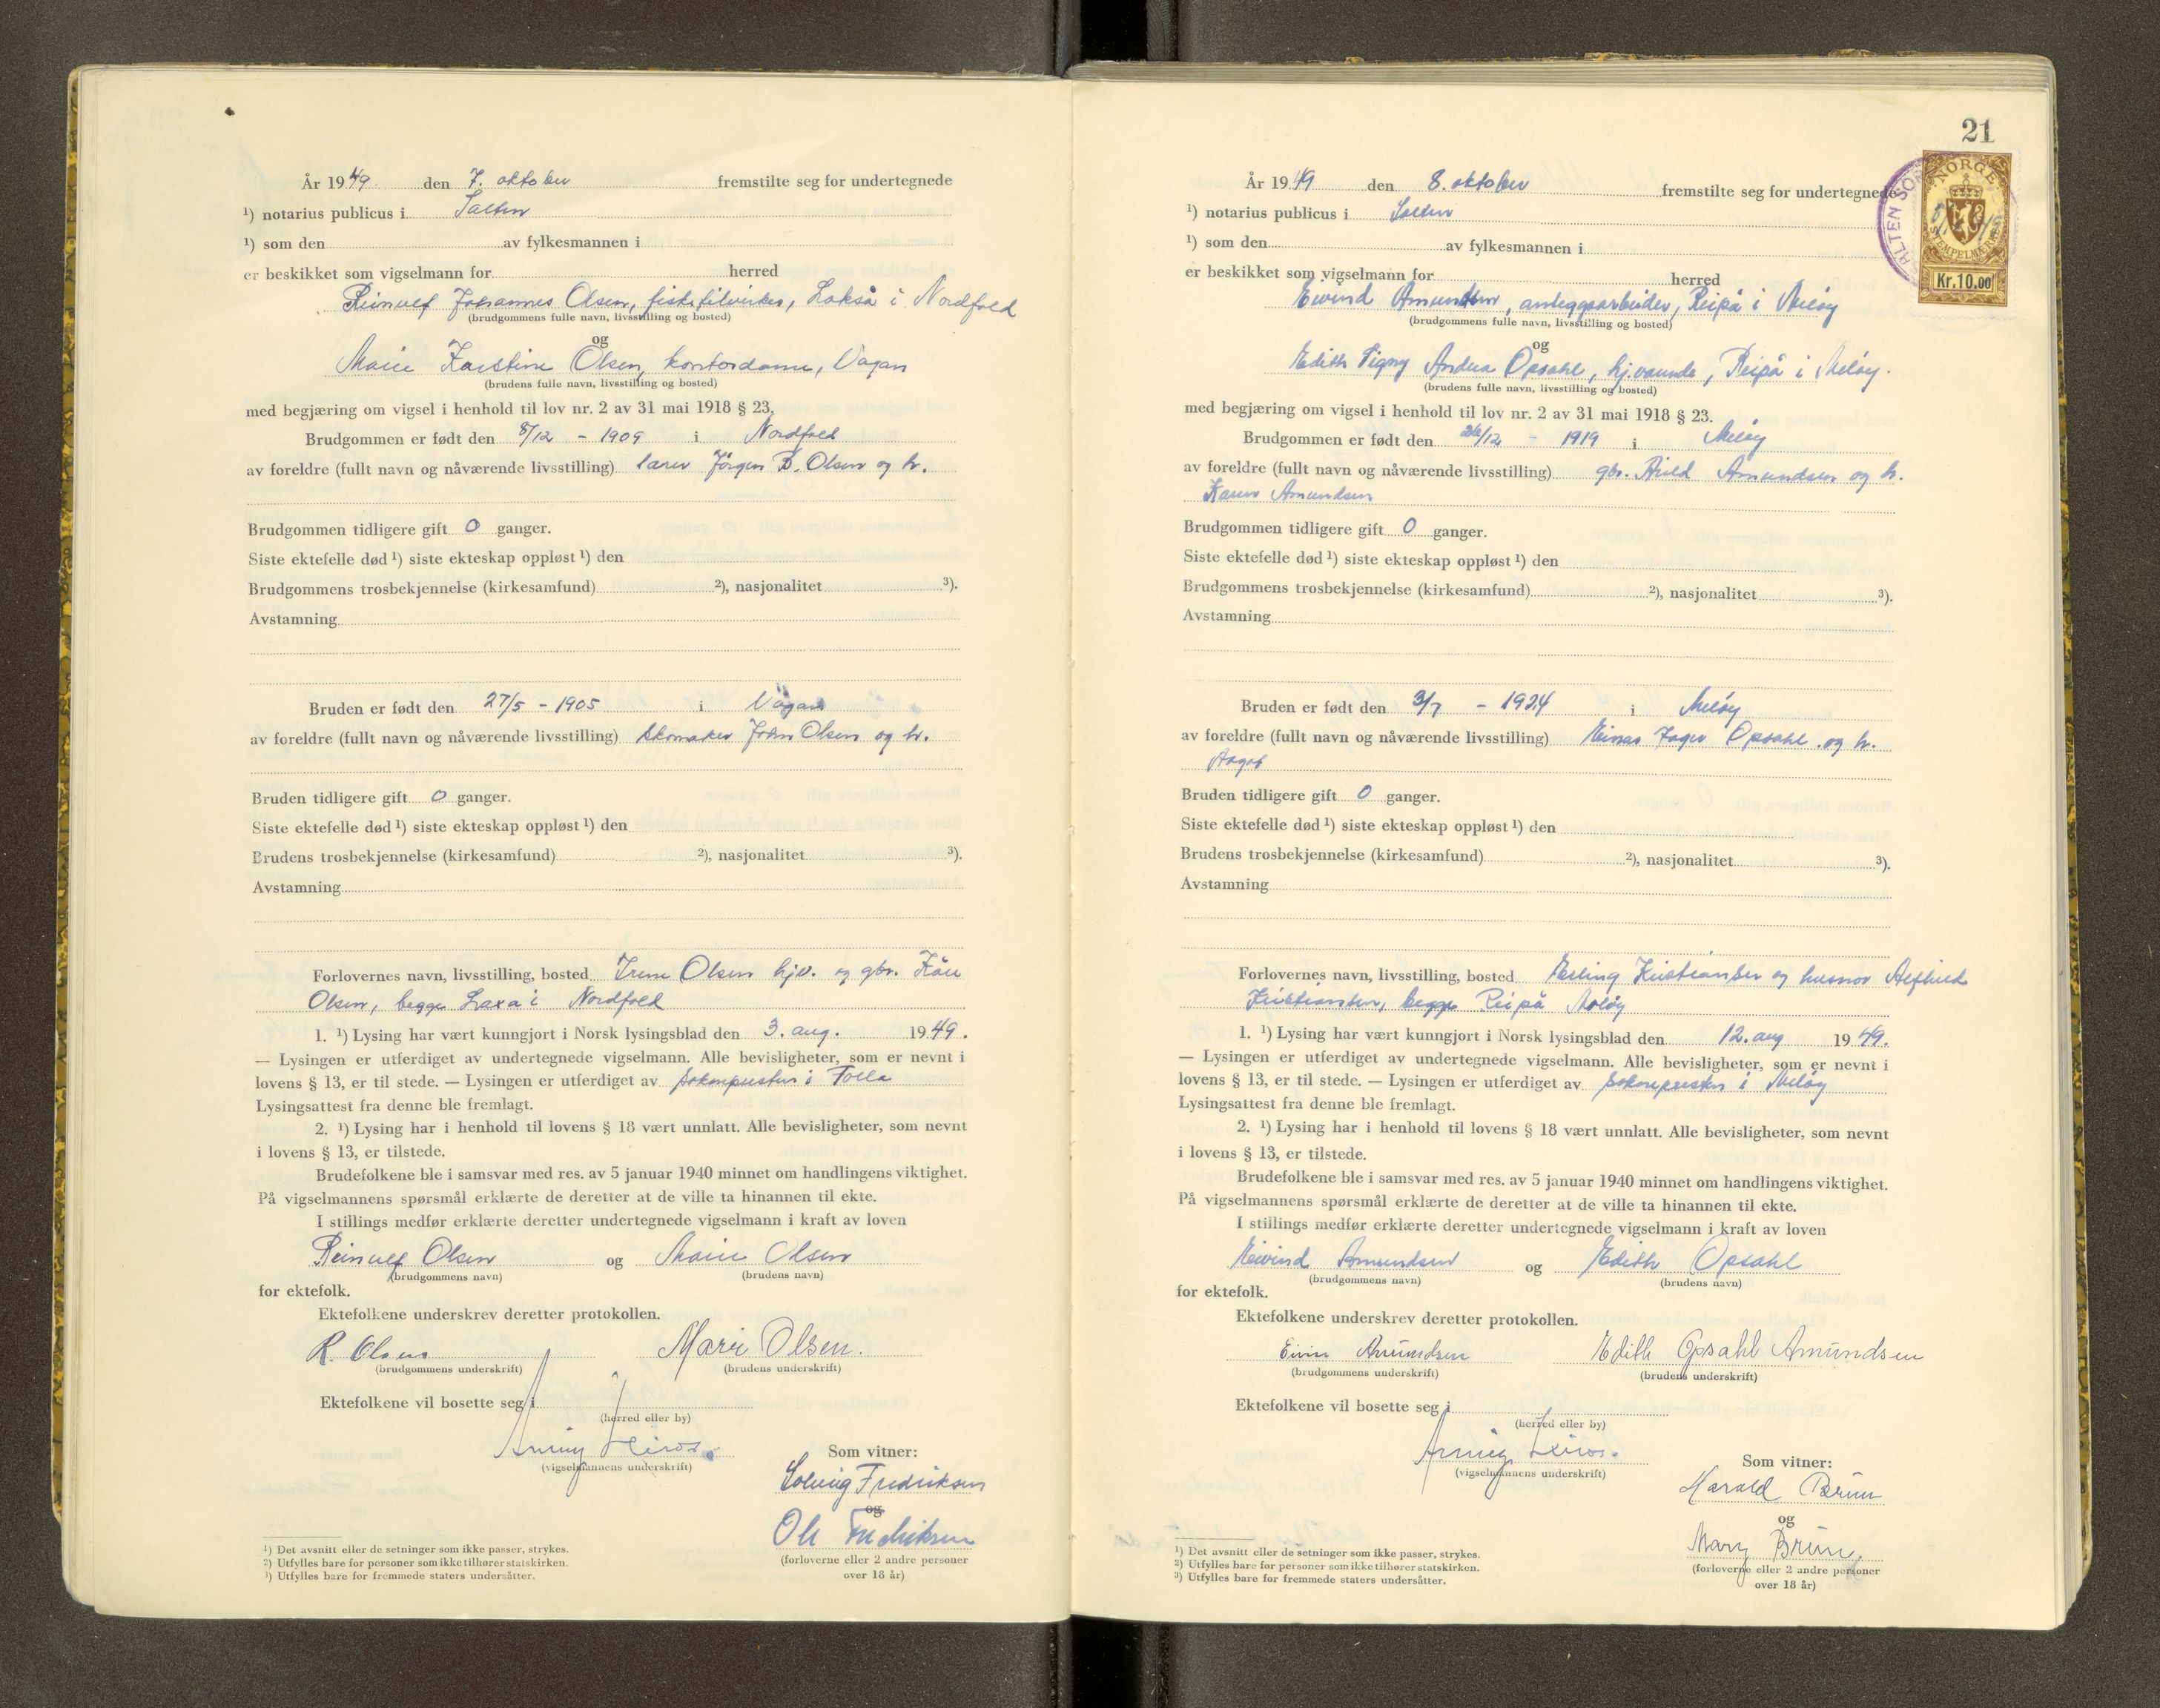 År 1949. den 7. oktober fremstilte seg for undertegnede
¹) notarius publicus i Salten
¹) som den av fylkesmannen i
er beskikket som vigselmann for herred
Reinulf Johannes Olsen, fisketilvirker, Lakså i Nordfold
(brudgommens fulle navn, livsstilling og bosted)
og
Marie Karstine Olsen, kontordame, Vågan
(brudens fulle navn, livsstilling og bosted)
med begjæring om vigsel i henhold til lov nr. 2 av 31 mai 1918 § 23.
Brudgommen er født den 8/12 - 1909 i Nordfold
av foreldre (fullt navn og nåværende livsstilling) lærer Jörgen B. Olsen og h.
Brudgommen tidligere gift 0 ganger.
Siste ektefelle død ¹) siste ekteskap oppløst ¹) den
Brudgommens trosbekjennelse (kirkesamfund) ²), nasjonalitet ³).
Avstamning
Bruden er født den 27/5 - 1905 i Vågan
av foreldre (fullt navn og nåværende livsstilling) skomaker John Olsen og h.
Bruden tidligere gift 0 ganger.
Siste ektefelle død ¹) siste ekteskap oppløst ¹) den
Brudens trosbekjennelse (kirkesamfund) ²), nasjonalitet ³).
Avstamning
Forlovernes navn, livsstilling, bosted Irene Olsen hjv. og gbr. Kåre
Olsen, begge Laxå i Nordfold
1. ¹) Lysing har vært kunngjort i Norsk lysingsblad den 3. aug. 1949.
— Lysingen er utferdiget av undertegnede vigselmann. Alle bevisligheter, som er nevnt i
lovens § 13, er til stede. — Lysingen er utferdiget av soknepresten i Folla
Lysingsattest fra denne ble fremlagt.
2. ¹) Lysing har i henhold til lovens § 18 vært unnlatt. Alle bevisligheter, som nevnt
i lovens § 13, er tilstede.
Brudefolkene ble i samsvar med res. av 5 januar 1940 minnet om handlingens viktighet.
På vigselmannens spørsmål erklærte de deretter at de ville ta hinannen til ekte.
I stillings medfør erklærte deretter undertegnede vigselmann i kraft av loven
Reinulf Olsen og Marie Olsen
(brudgommens navn) (brudens navn)
for ektefolk.
Ektefolkene underskrev deretter protokollen.
R. Olsen Marie Olsen.
(brudgommens underskrift) (brudens underskrift)
Ektefolkene vil bosette seg i
(herred eller by)
(vigselmannens underskrift)
Som vitner:
Solveig Fredriksen
og
Ole Fredriksen
(forloverne eller 2 andre personer
over 18 år)
¹) Det avsnitt eller de setninger som ikke passer, strykes.
²) Utfylles bare for personer som ikke tilhører statskirken.
³) Utfylles bare for fremmede staters undersåtter.
21
NORGE
STEMPELMERKE
Kr. 10.00
År 1949 den 8. oktober fremstilte seg for undertegnede
¹) notarius publicus i Salten
¹) som den av fylkesmannen i
er beskikket som vigselmann for herred
Eivind Amundsen, anleggsarbeider, Reipå i Meløy
(brudgommens fulle navn, livsstilling og bosted)
og
Edith Signy Andrea Opsahl, hj.værende, Reipå i Meløy.
(brudens fulle navn, livsstilling og bosted)
med begjæring om vigsel i henhold til lov nr. 2 av 31 mai 1918 § 23.
Brudgommen er født den 26/12 - 1919 i Meløy
av foreldre (fullt navn og nåværende livsstilling) gbr. Amundsen og h.
Karen Amundsen
Brudgommen tidligere gift 0 ganger.
Siste ektefelle død ¹) siste ekteskap oppløst ¹) den
Brudgommens trosbekjennelse (kirkesamfund) ²), nasjonalitet ³).
Avstamning
Bruden er født den 3/7 - 1924 i Meløy
av foreldre (fullt navn og nåværende livsstilling) Einar Opsahl og h.
Bruden tidligere gift 0 ganger.
Siste ektefelle død ¹) siste ekteskap oppløst ¹) den
Brudens trosbekjennelse (kirkesamfund) ²), nasjonalitet ³).
Avstamning
Forlovernes navn, livsstilling, bosted Erling Kristiansen og husmor Alfhild
Kristiansen, begge Reipå Meløy
1. ¹) Lysing har vært kunngjort i Norsk lysingsblad den 12. aug 1949.
— Lysingen er utferdiget av undertegnede vigselmann. Alle bevisligheter, som er nevnt i
lovens § 13, er til stede. — Lysingen er utferdiget av soknepresten i Meløy
Lysingsattest fra denne ble fremlagt.
2. ¹) Lysing har i henhold til lovens § 18 vært unnlatt. Alle bevisligheter, som nevnt
i lovens § 13, er tilstede.
Brudefolkene ble i samsvar med res. av 5 januar 1940 minnet om handlingens viktighet.
På vigselmannens spørsmål erklærte de deretter at de ville ta hinannen til ekte.
I stillings medfør erklærte deretter undertegnede vigselmann i kraft av loven
Eivind Amundsen og Edith Opsahl
(brudgommens navn) (brudens navn)
for ektefolk.
Ektefolkene underskrev deretter protokollen.
Eivin Amundsen Edith Opsahl Amundsen
(brudgommens underskrift) (brudens underskrift)
Ektefolkene vil bosette seg i
(herred eller by)
(vigselmannens underskrift)
Som vitner:
Harald Brun
og
Mary Brun,
(forloverne eller 2 andre personer
over 18 år)
¹) Det avsnitt eller de setninger som ikke passer, strykes.
²) Utfylles bare for personer som ikke tilhører statskirken.
³) Utfylles bare for fremmede staters undersåtter.